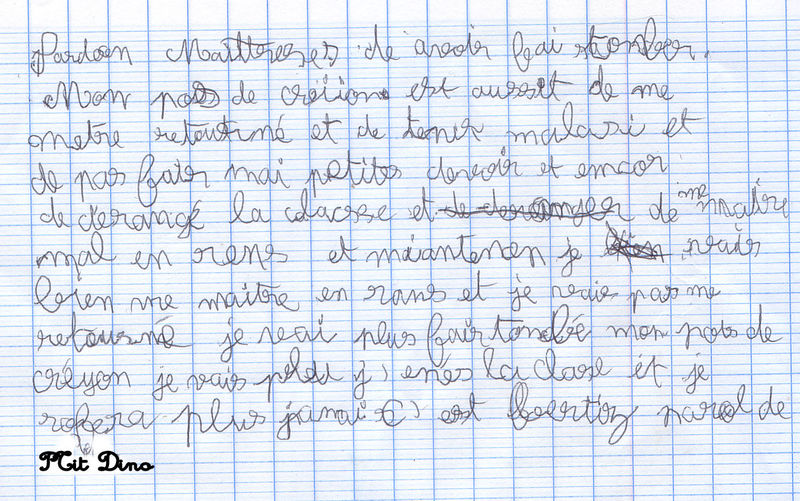 Pardoen Maîttreses de avoir fai tonber
Mon pos de créiion est aussit de me
metre retourné et de tenir mal asi et
de pas fair mai petites devoir et encor
de derangé la clacsse et de me maitre
mal en rens et maiantenen je vais
bien me maitre en rans et je vais pas me
retourné je vai plus fair tonbé mon pos de
créyon je vais plu j'enés la classe et je
rofera plus jamai C'est parol de
P'tit Dino